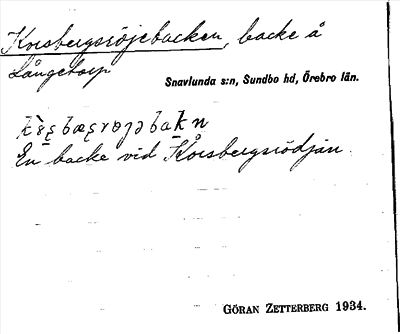 Korsbergsröjebacken, backe å
Långetorp
Snavlunda s:n, Sundbo hd, Örebro län.
En backe vid Korsbergsrödjan.
GÖRAN ZETTERBERG 1934.